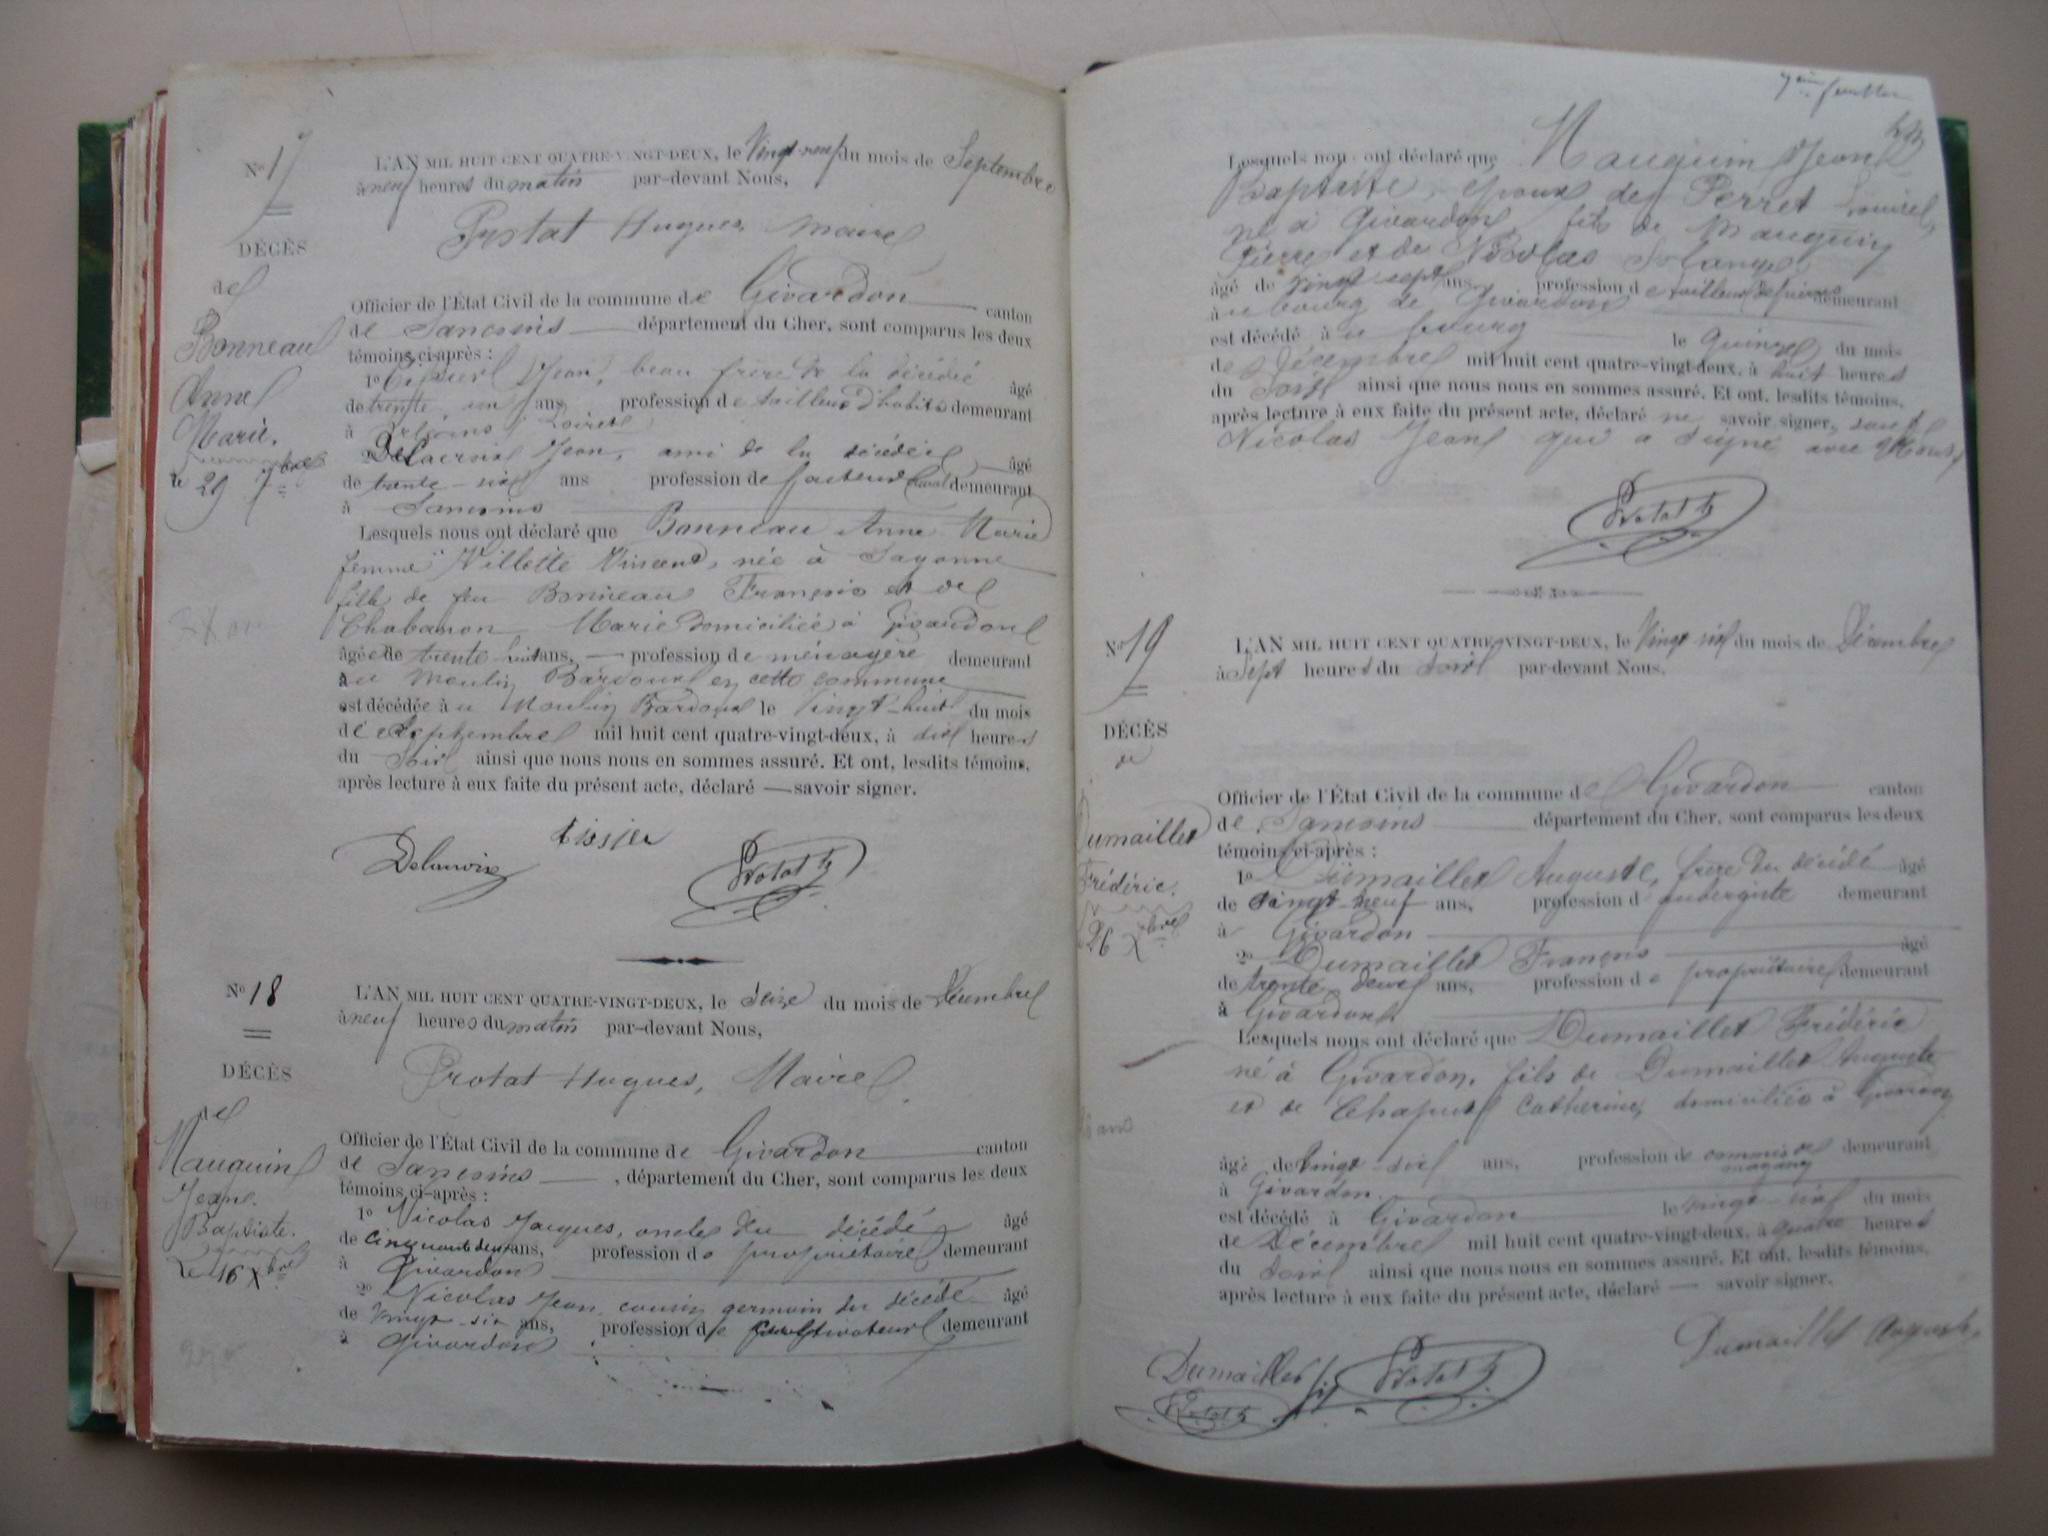 N° 17
DÉCÈS
de
Bonneau
Anne
Marie.
le 29 7bre
L'AN MIL HUIT CENT QUATRE-VINGT-DEUX, le Vingt-neuf du mois de Septembre
à neuf heures du matin par-devant Nous,
Protat Hugues, maire
Officier de l'État Civil de la commune de Givardon canton
de Sancoins département du Cher, sont comparus les deux
témoins ci-après :
1° Jean, beau frère de la décédée âgé
de trente un ans, profession de tailleur d'habits demeurant
à Loiret
2° Delacroix Jean, ami de la décédée âgé
de trente-six ans profession de facteur rural demeurant
à Sancoins
Lesquels nous ont déclaré que Bonneau Anne Marie
femme Villette Vincent, née à Sagonne
fille de feu Bonneau François et de
Chabanon Marie domiciliée à Givardon
âgée de trente huit ans, profession de ménagère demeurant
au Moulin Bardoux en cette commune
est décédée au Moulin Bardoux le Vingt-huit du mois
de Septembre mil huit cent quatre-vingt-deux, à dix heures
du Soir ainsi que nous nous en sommes assuré. Et ont, lesdits témoins,
après lecture à eux faite du présent acte, déclaré — savoir signer.
Delacroix tissier Protat h
N° 18
DÉCÈS
de
Mauguin
Jean.
Baptiste.
Le 16 Xbre
L'AN MIL HUIT CENT QUATRE-VINGT-DEUX, le Seize du mois de Décembre
à neuf heures du matin par-devant Nous,
Protat Hugues, Maire
Officier de l'État Civil de la commune de Givardon canton
de Sancoins, département du Cher, sont comparus les deux
témoins ci-après :
1° Nicolas Jacques, oncle du décédé âgé
de cinquante deux ans, profession de propriétaire demeurant
à Givardon
2° Nicolas Jean, cousin germain du décédé âgé
de vingt-six ans, profession de cultivateur demeurant
à Givardon
7ème feuillet
Lesquels nous ont déclaré que, Mauguin Jean
Baptiste, époux de Perret Louise,
né à Givardon, fils de Mauguin
Pierre et de Nicolas Solange
âgé de vingt sept ans, profession de tailleur de pierres demeurant
au bourg de Givardon
est décédé au bourg le Quinze du mois
de Décembre mil huit cent quatre-vingt-deux, à huit heures
du Soir ainsi que nous nous en sommes assuré. Et ont, lesdits témoins,
après lecture à eux faite du présent acte, déclaré ne savoir signer, sauf
Nicolas Jean qui a signé avec Nous,
Protat h
N° 19
DÉCÈS
de
Dumaillet
Frédéric.
26 Xbre
L'AN MIL HUIT CENT QUATRE-VINGT-DEUX, le Vingt six du mois de Décembre
à Sept heures du soir par-devant Nous,
Officier de l'État Civil de la commune de Givardon canton
de Sancoins département du Cher, sont comparus les deux
témoins ci-après :
1° Dumaillet Auguste, frère du décédé âgé
de vingt-neuf ans, profession d'aubergiste demeurant
à Givardon
2° Dumaillet François âgé
de trente deux ans, profession de propriétaire demeurant
à Givardon
Lesquels nous ont déclaré que Dumaillet Frédéric
né à Givardon, fils de Dumaillet Auguste
et de Chaput Catherine, domiciliés à Givardon
âgé de vingt-six ans, profession de commis de magasin demeurant
à Givardon.
est décédé à Givardon le vingt-six du mois
de Décembre mil huit cent quatre-vingt-deux, à quatre heures
du soir ainsi que nous nous en sommes assuré. Et ont, lesdits témoins,
après lecture à eux faite du présent acte, déclaré — savoir signer.
Dumaillet Auguste
Dumaillet fs Protat h
Protat h